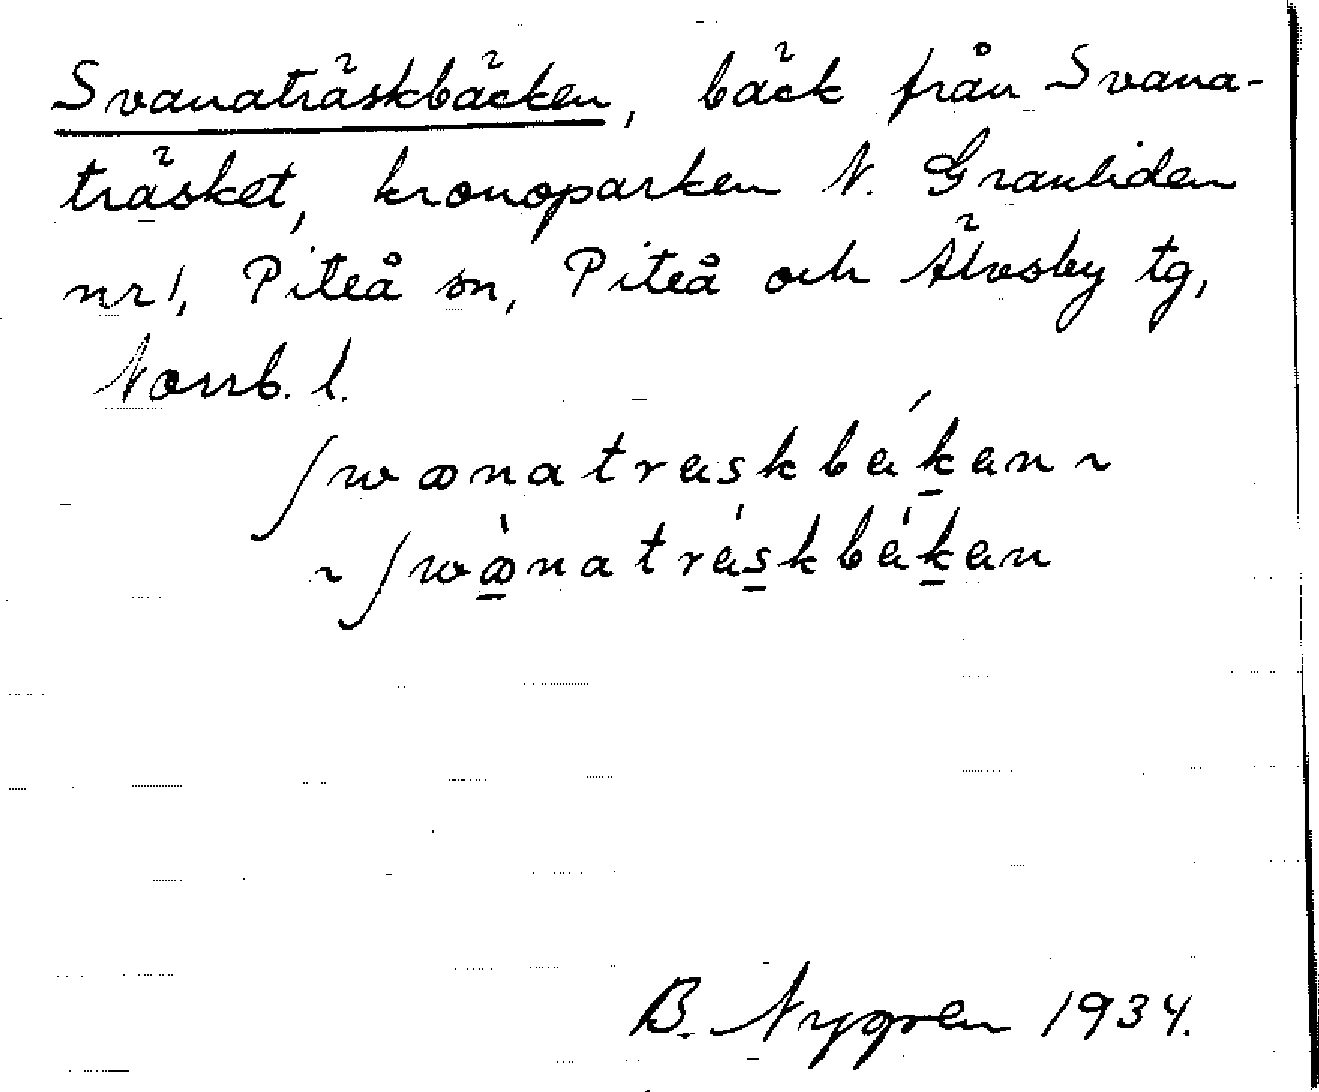 Svanaträskbäcken, bäck från Svana-
träsket, kronoparken N. Granliden
nr 1, Piteå sn, Piteå och Älvsby tg,
Norrb. l.
ʃwωnatraskbákan ~
~ ʃwὼnatráskbákan
B. Nygren 1934.